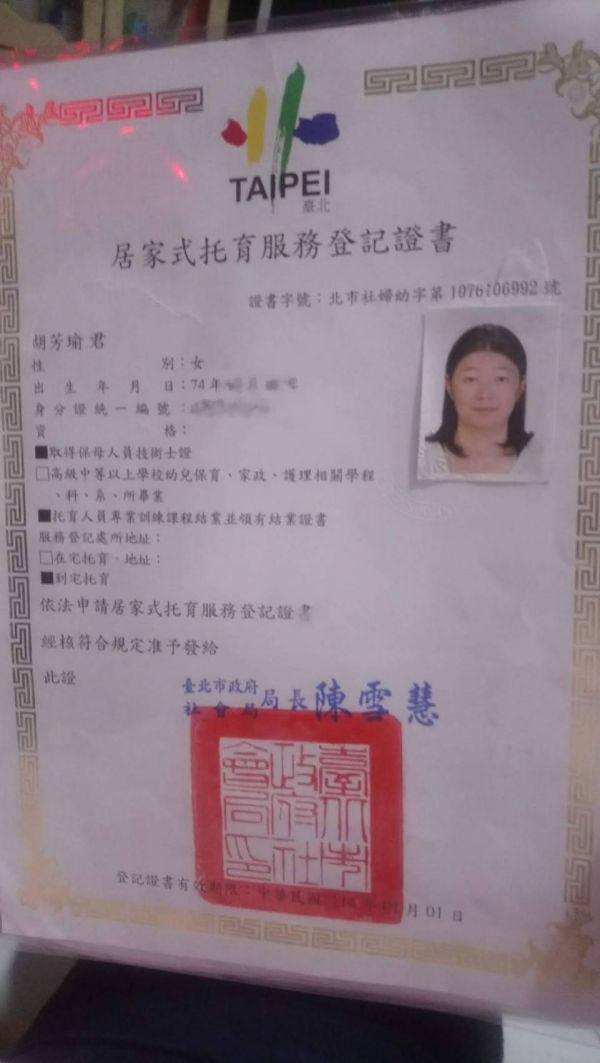 TAIPEI
臺北
居家式托育服務登記證書
證書字號：北市社婦幼字第1076106992號
胡芳瑜君
性別：女
出生年月日：74年
身分證統一編號：
資格：
■取得保母人員技術士證
□高級中等以上學校幼兒保育、家政、護理相關學程
、科、系、所畢業
■托育人員專業訓練課程結業並領有結業證書
服務登記處所地址：
□在宅托育，地址：
■到宅托育
依法申請居家式托育服務登記證書
經核符合規定准予發給
此證
臺北市政府
社會局
局長陳雪慧
臺北市政府社會局印
登記證書有效期限：中華民國114年01月01日